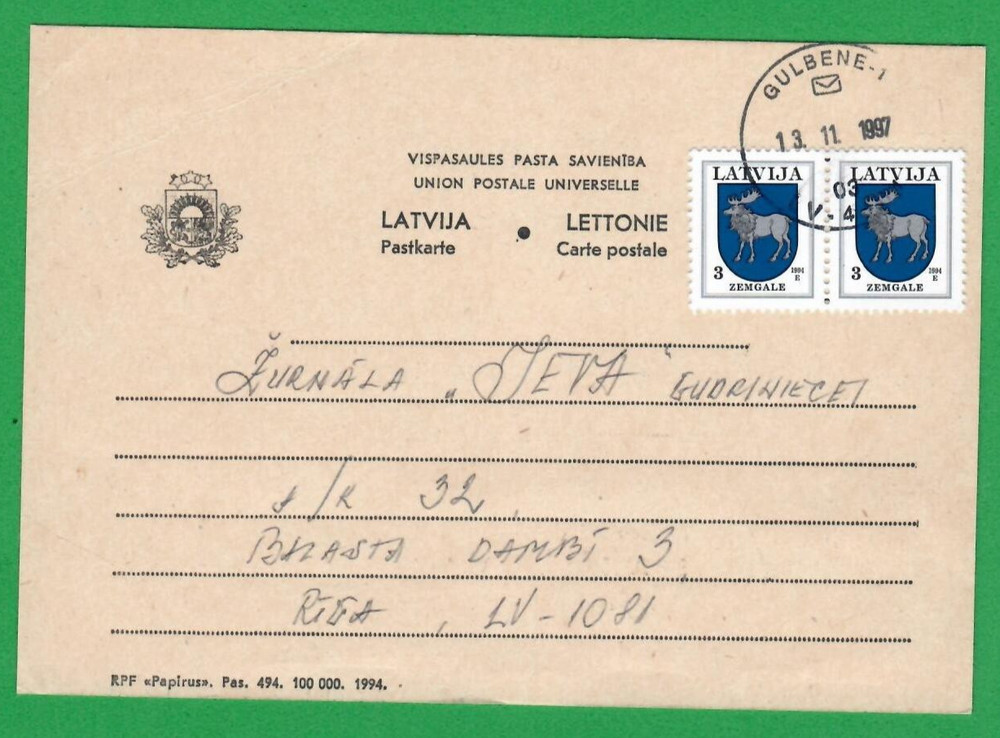 GULBENE-1
13. 11. 1997
03
LV-4
VISPASAULES PASTA SAVIENĪBA
UNION POSTALE UNIVERSELLE
LATVIJA • LETTONIE
Pastkarte Carte postale
LATVIJA
3 1994 E
ZEMGALE
LATVIJA
3 1994 E
ZEMGALE
ŽURNĀLA „IEVA“ GUDRINIECEI
A/K 32,
BALASTA DAMBĪ 3,
RĪGA, LV-1081
RPF «Papirus». Pas. 494. 100 000. 1994.